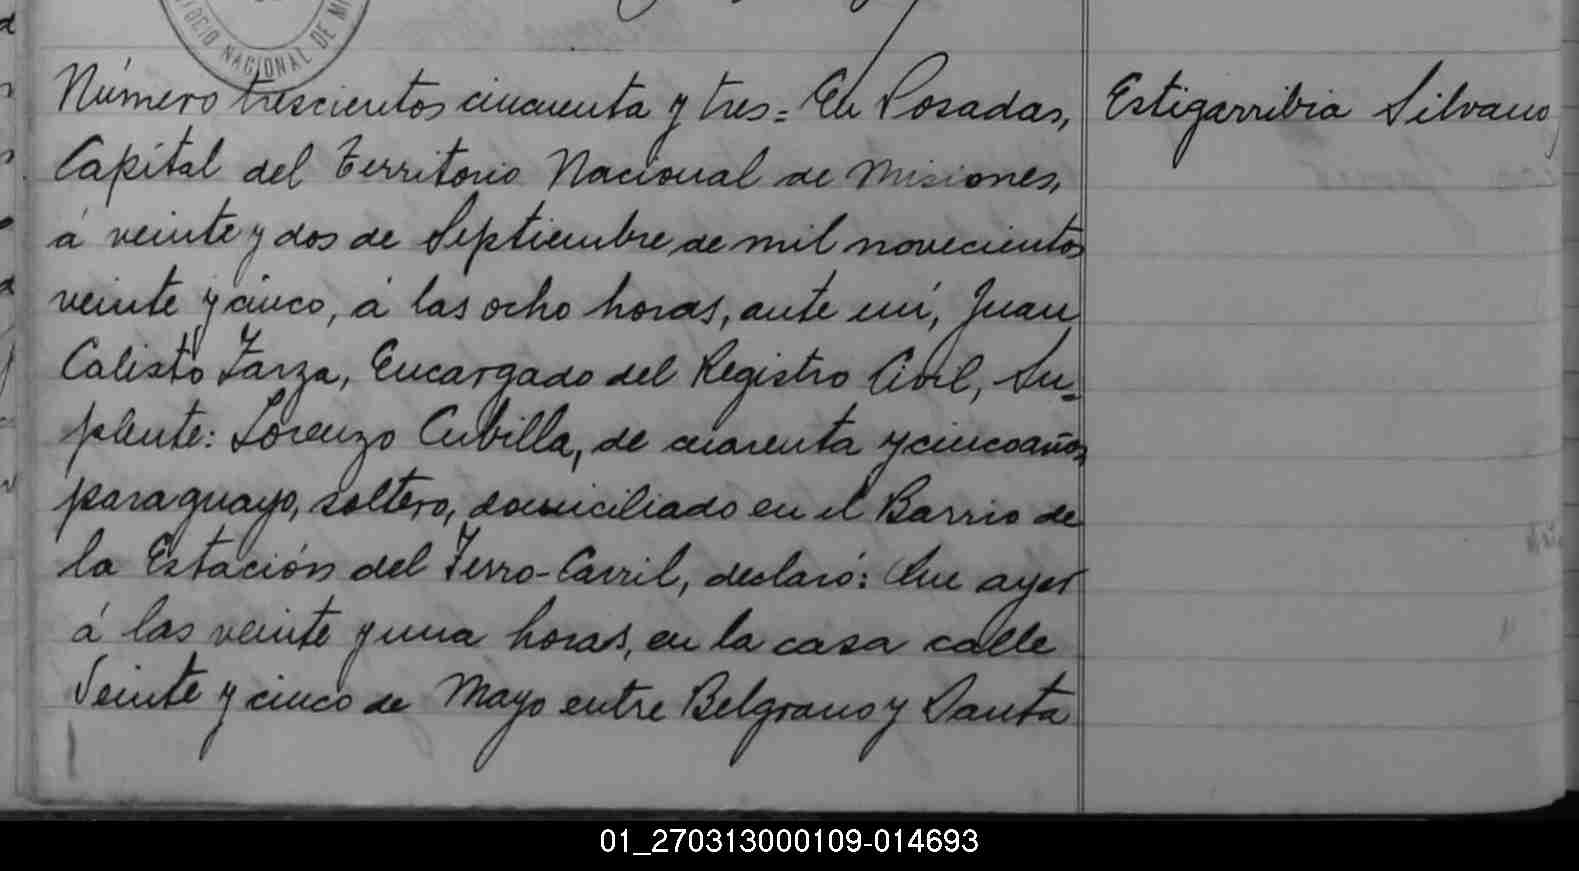 NACIONAL DE
Número trescientos cincuenta y tres = En Posadas,
Capital del Territorio Nacional de Misiones,
á veinte y dos de Septiembre de mil novecientos
veinte y cinco, á las ocho horas, ante mí, Juan
Calisto Zarza, Encargado del Registro Civil, Su=
plente: Lorenzo Cubilla, de cuarenta y cinco años,
paraguayo, soltero, domiciliado en el Barrio de
la Estación del Ferro-Carril, declaró: Que ayer
á las veinte y una horas, en la casa calle
Veinte y cinco de Mayo entre Belgrano y Santa
Estigarribia Silvano
01_270313000109-014693